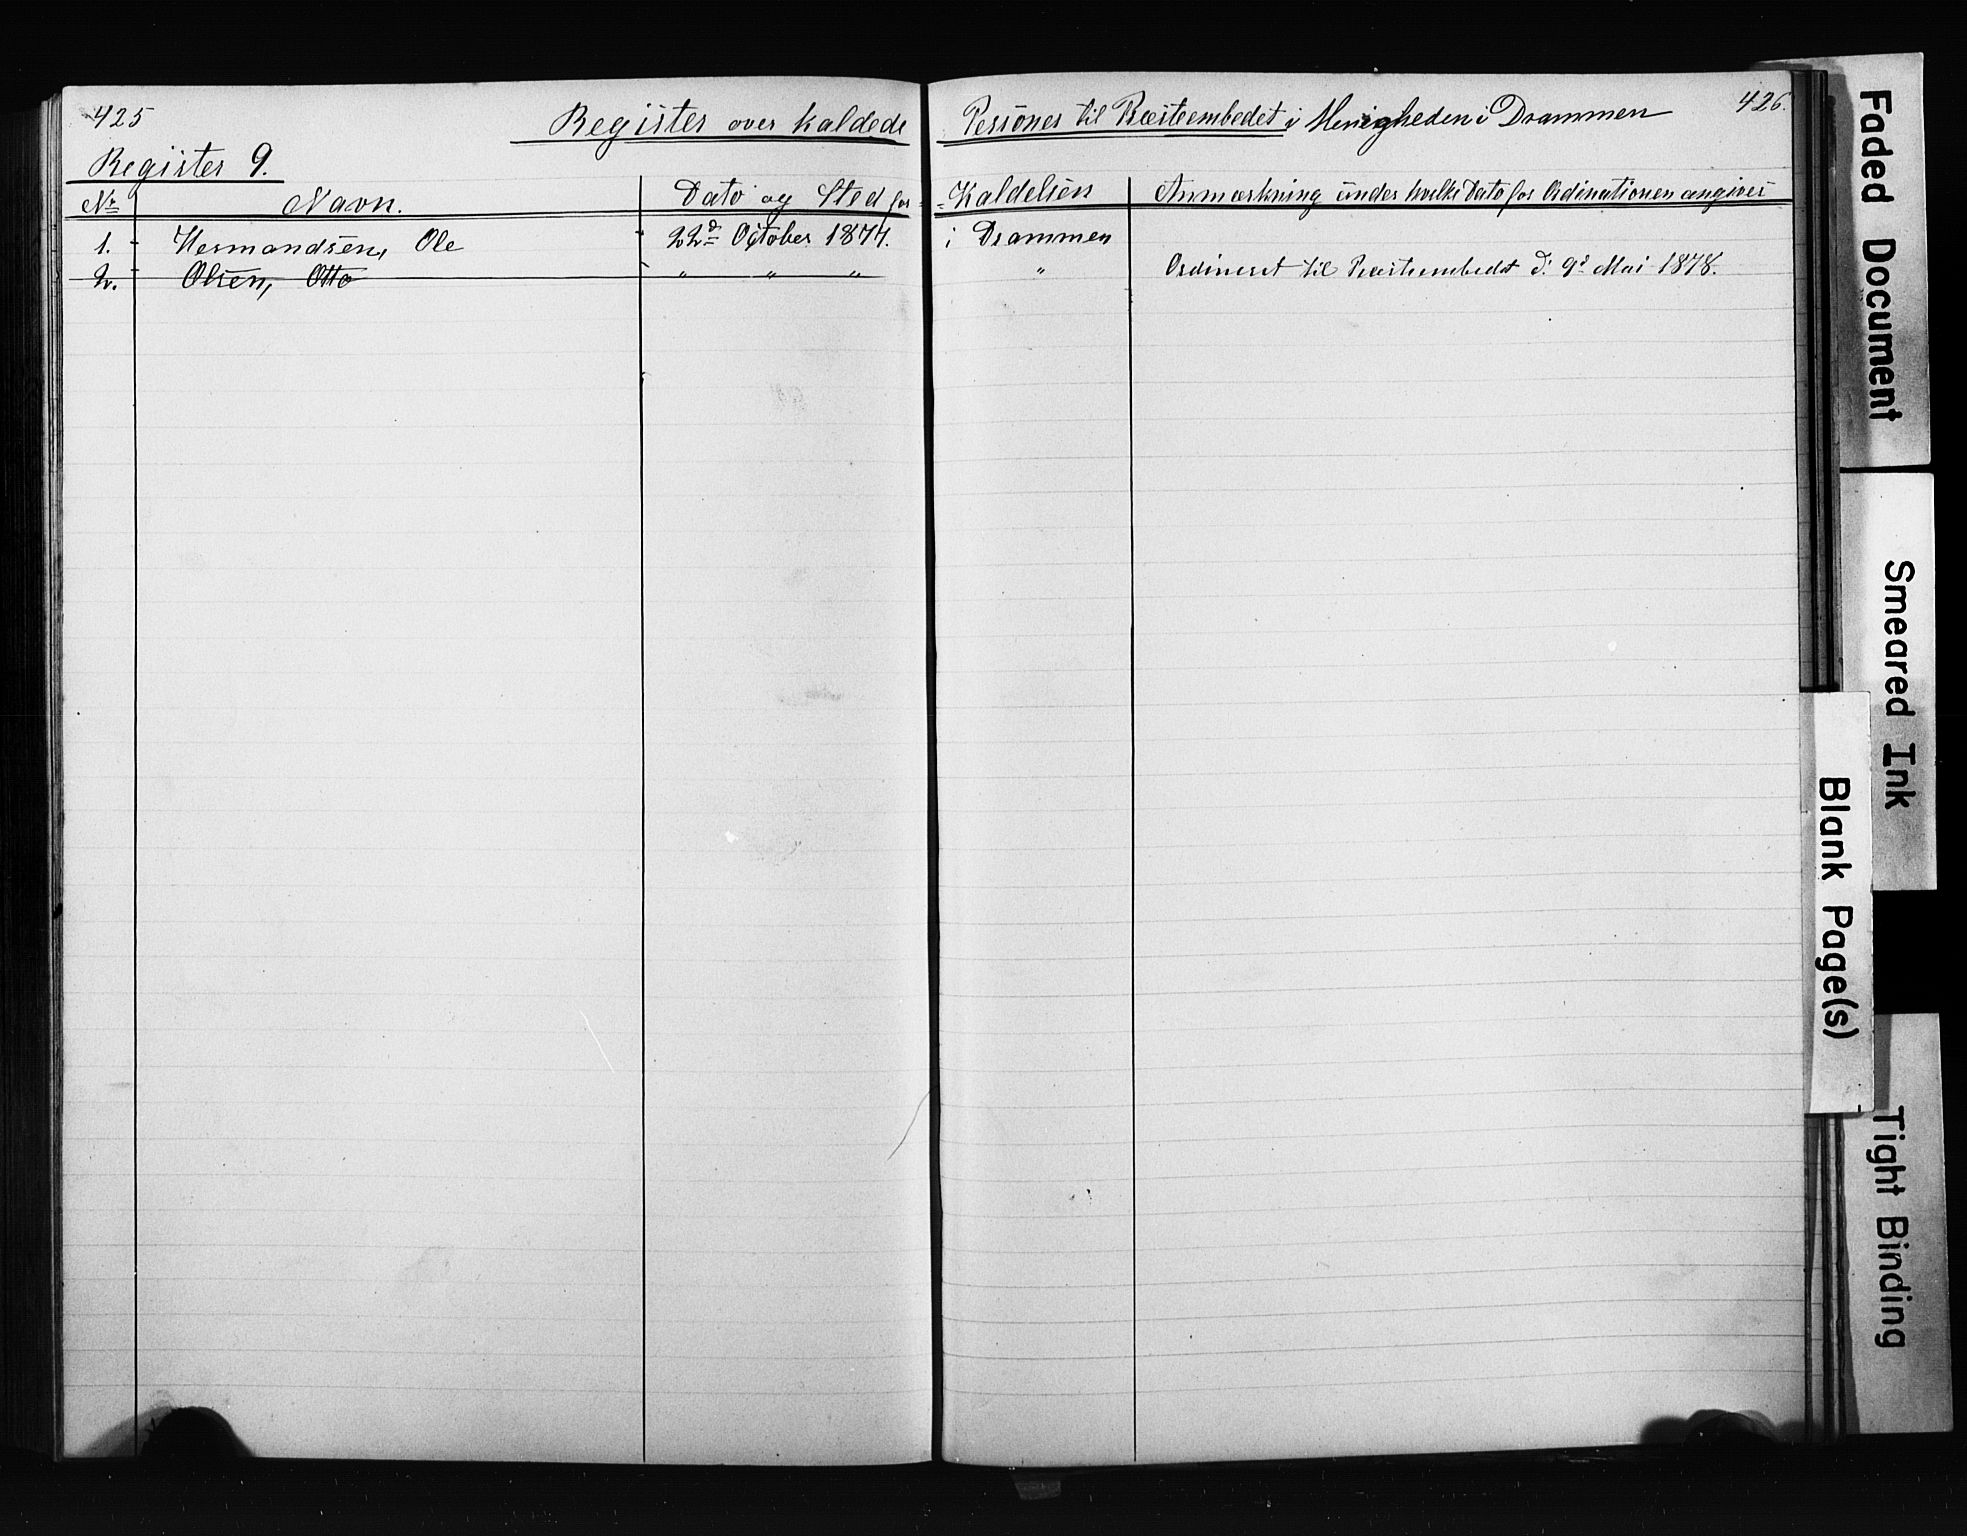 425
Register over kaldede Personer til Præsteembedet i Menigheden i Drammen
426.
Register 9.
No Navn. Dato og Sted for Kaldelsen Anmærkning under hvilke Dato for Ordinationen angives
1. Hermandsen, Ole 22d October 1877. i Drammen
2. Olsen, Otto " " " " Ordineret til Præsteembedet d. 9d Mai 1878.
Faded Document
Smeared Ink
Blank Page(s)
Tight Binding